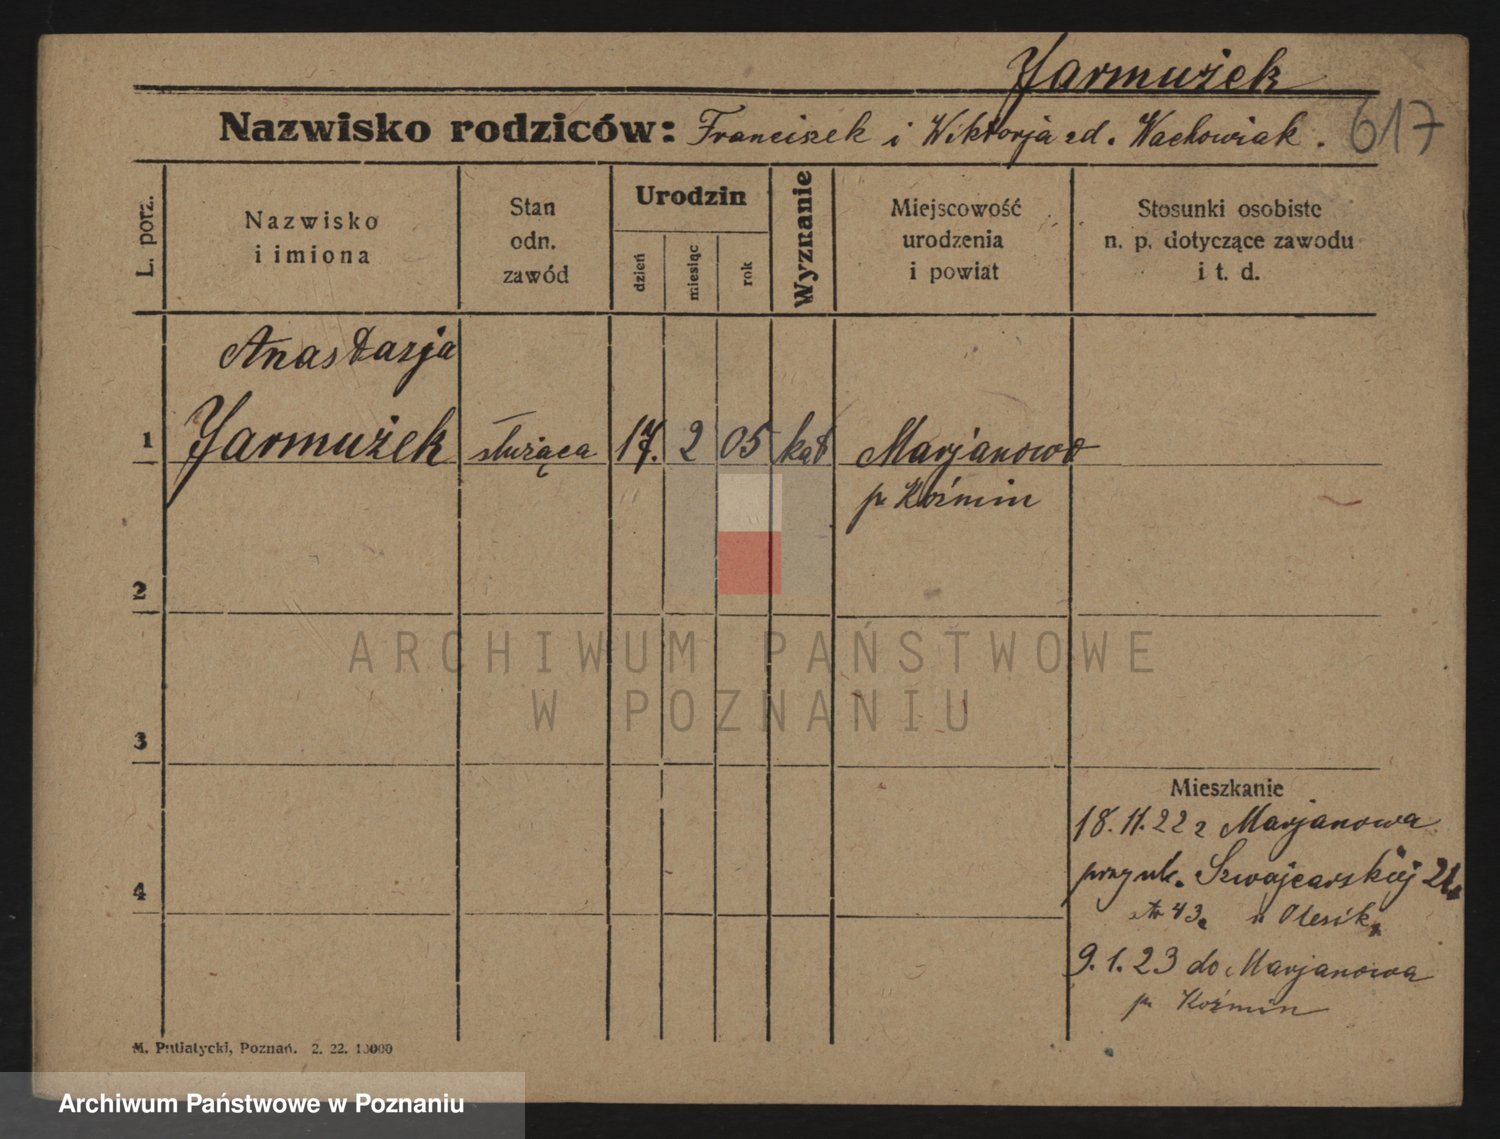 Jarmużek
Nazwisko rodziców: Franciszek i Wiktorja zd. Wachowiak. 617
L. porz.
Nazwisko
i imiona
Stan
odn.
zawód
Urodzin
dzień
miesiąc
rok
Wyznanie
Miejscowość
urodzenia
i powiat
Stosunki osobiste
n. p. dotyczące zawodu
i t. d.
Anastazja
1 Jarmużek służąca 17. 2 05 kat Marjanowo
p. Koźmin
2
ARCHIWUM PAŃSTWOWE
W POZNANIU
3
Mieszkanie
18.11.22 z Marjanowa
przy ul. Szwajcarskiej
43. u Olesik
4
9.1.23 do Marjanowa
p. Koźmin
M. Putiatycki, Poznań. 2. 22. 10000
Archiwum Państwowe w Poznaniu